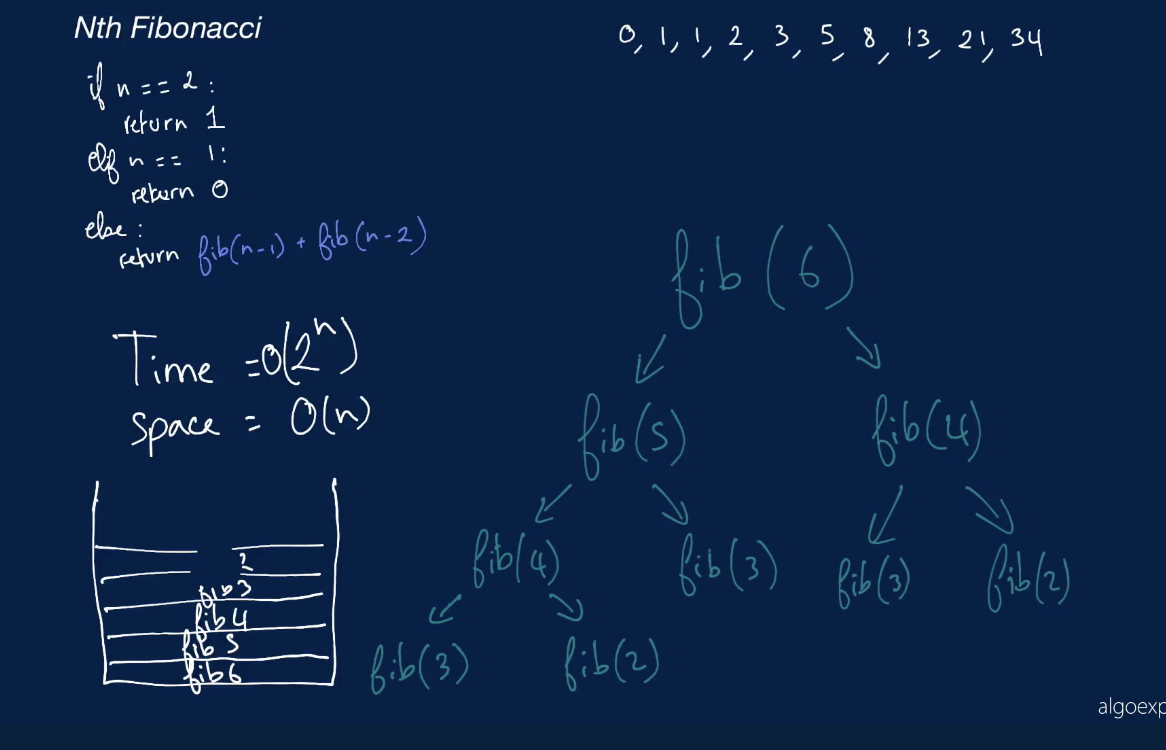 Nth Fibonacci
0, 1, 1, 2, 3, 5, 8, 13, 21, 34
if n == 2 :
return 1
elif n == 1:
return 0
else :
return fib(n-1) + fib(n-2)
Time = O(2^n)
Space = O(n)
2
fib3
fib 4
fib 5
fib6
fib (6)
fib(5) fib(4)
fib(4) fib(3) fib(3) fib(2)
fib(3) fib(2)
algoexp